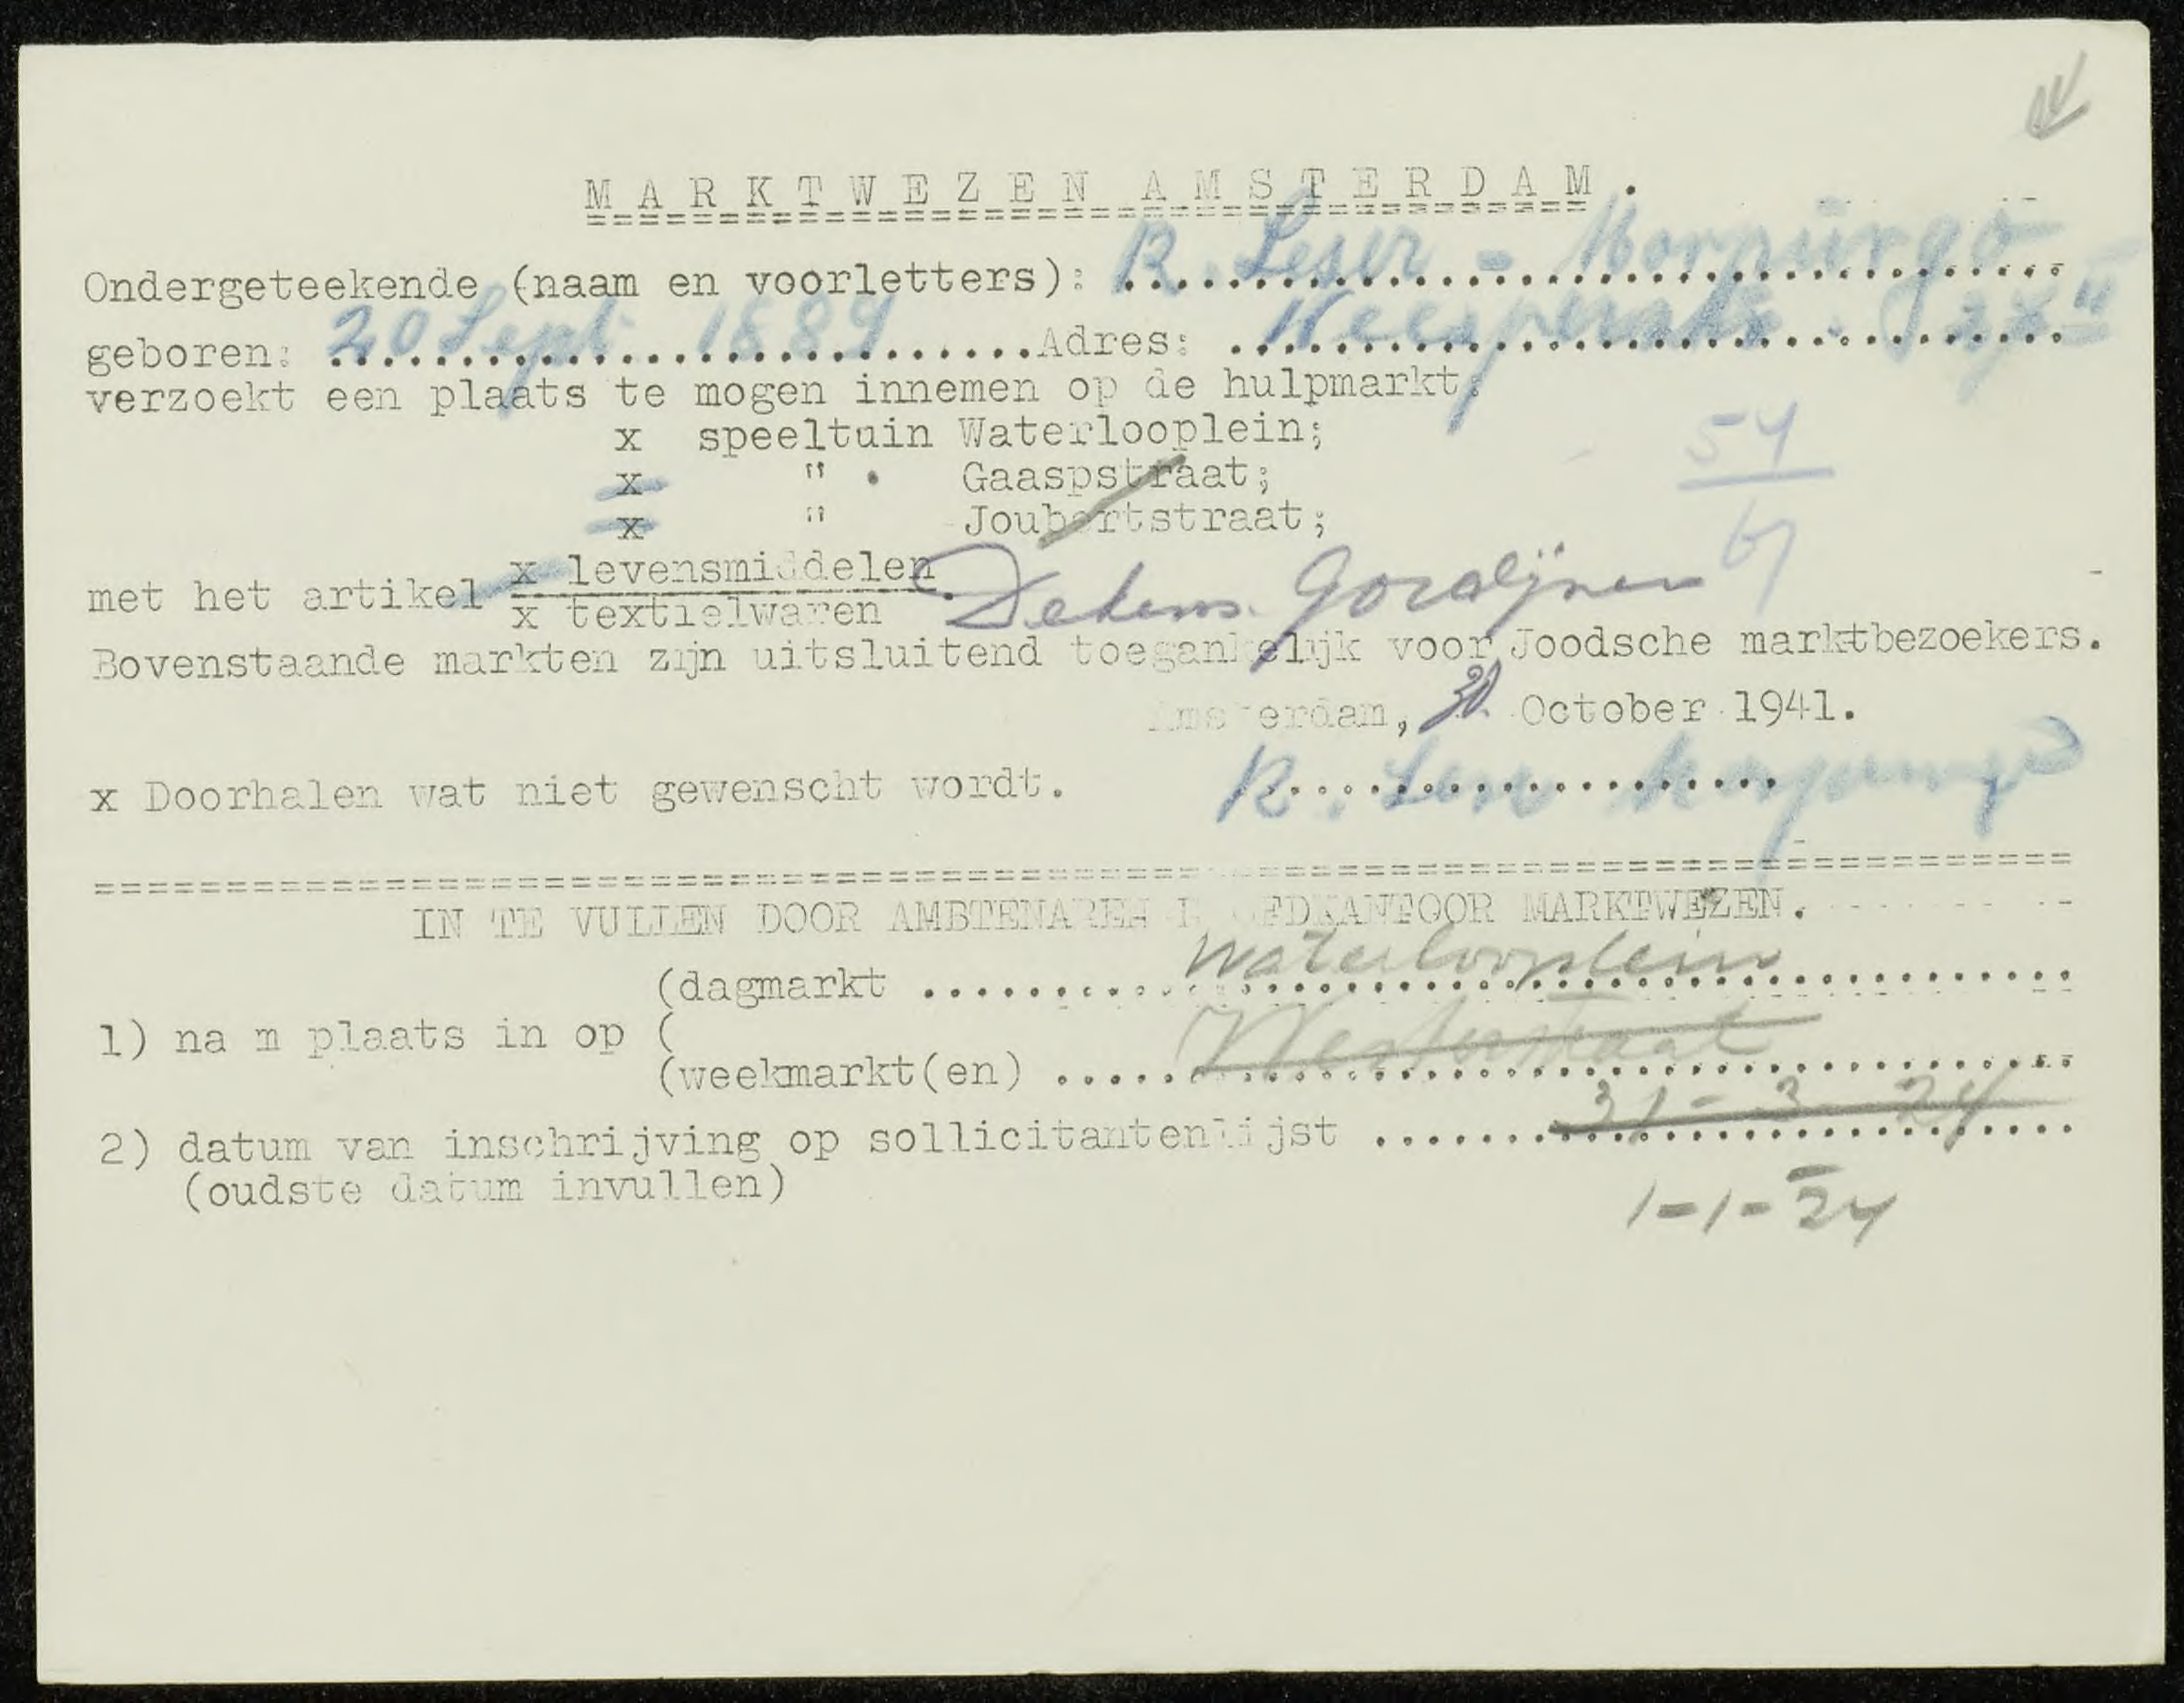 MARKTWEZEN AMSTERDAM.
Ondergeteekende (naam en voorletters): R. Leser - Morpurgo
geboren: 20 Sept 1889 Adres: 27 II
verzoekt een plaats te mogen innemen op de hulpmarkt:
x speeltuin Waterlooplein;
x " . Gaaspstraat;
x " Joubertstraat;
54
67
met het artikel x levensmiddelen
x textielwaren. Dekens. Gordijnen
Bovenstaande markten zijn uitsluitend toegankelijk voor Joodsche marktbezoekers.
Amsterdam, 30 October 1941.
x Doorhalen wat niet gewenscht wordt. R. Leser Morpurgo
IN TE VULLEN DOOR AMBTENAREN HOOFDKANTOOR MARKTWEZEN.
(dagmarkt Waterlooplein
1) na m plaats in op (
(weekmarkt(en) Westerstraat
2) datum van inschrijving op sollicitantenlijst 31-3-24
(oudste datum invullen)
1-1-24